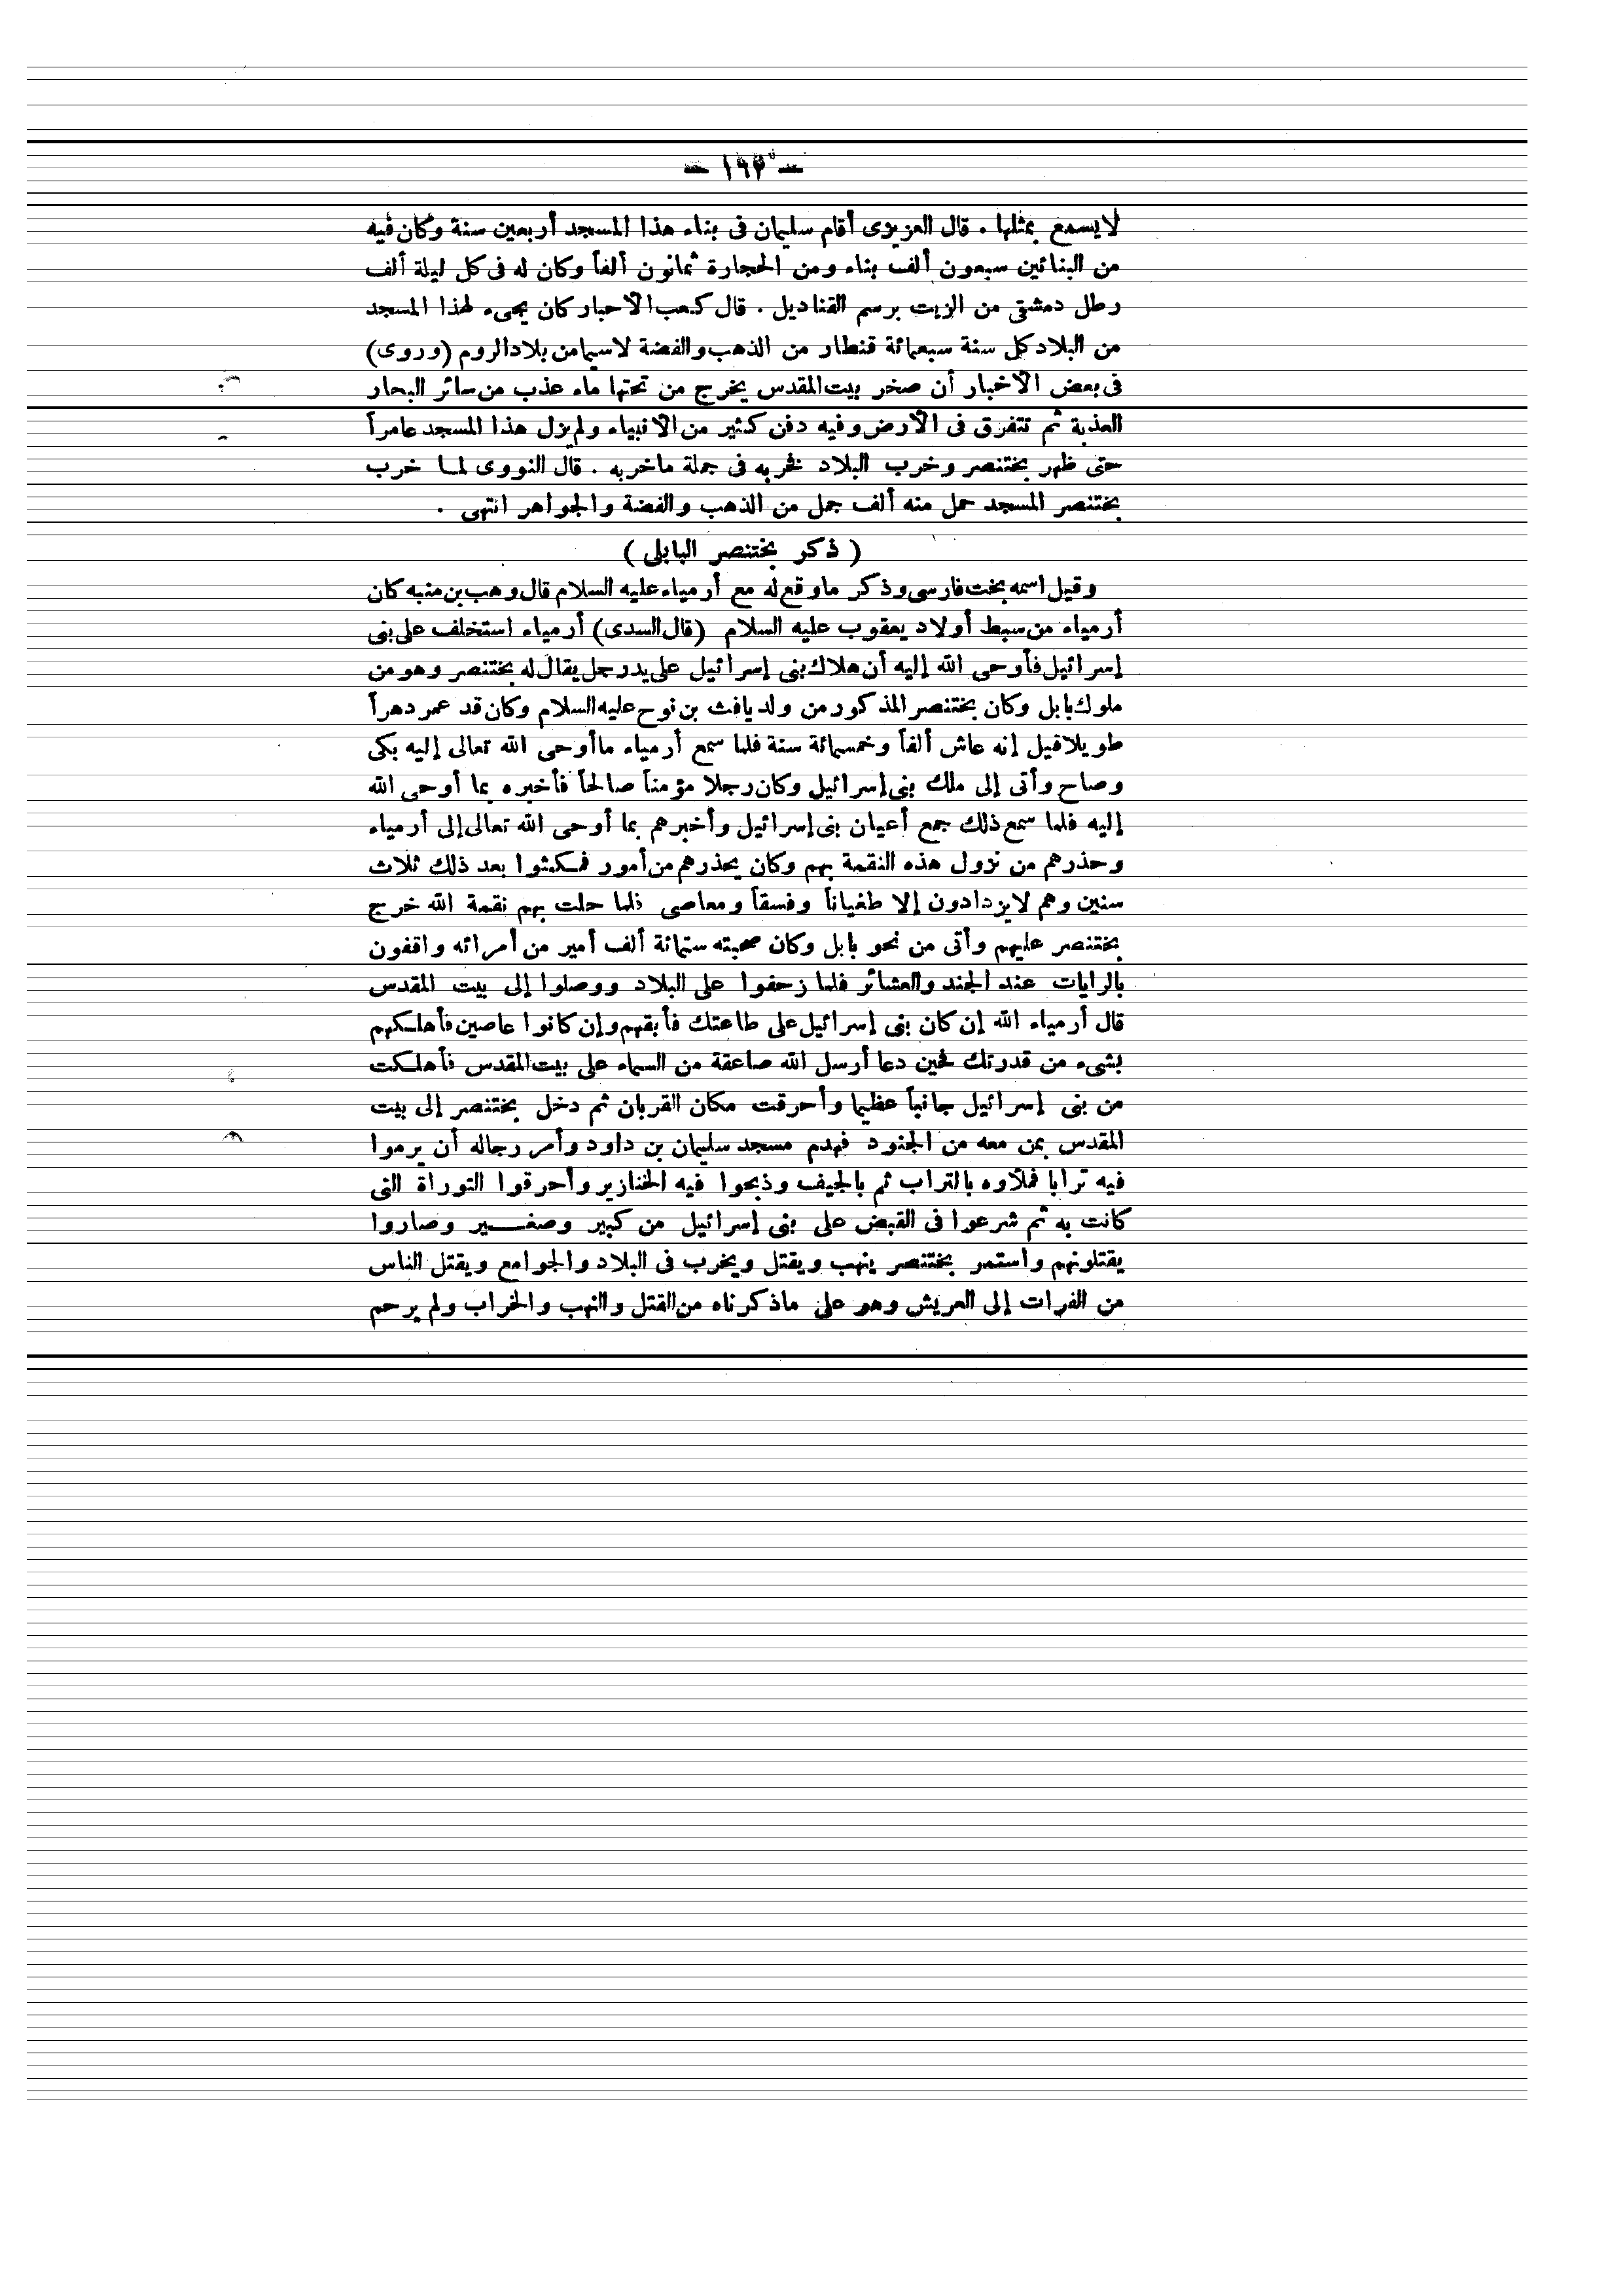 — ١٩٣ —
لا يسمع بمثلها . قال العزيزى أقام سليمان فى بناء هذا المسجد أربعين سنة وكان فيه
من البنائين سبعون ألف بناء ومن الحجارة ثمانون ألفاً وكان له فى كل ليلة ألف
رطل دمشقى من الزيت برسم القناديل . قال كعب الاحبار كان يجىء لهذا المسجد
من البلاد كل سنة سبعمائة قنطار من الذهب والفضة لا سيما من بلاد الروم (وروى)
فى بعض الاخبار أن صخر بيت المقدس يخرج من تحتها ماء عذب من سائر البحار
العذبة ثم تتفرق فى الأرض وفيه دفن كثير من الانبياء ولم يزل هذا المسجد عامراً
حتى ظهر بختنصر وخرب البلاد فخربه فى جملة ما خربه . قال النووى لما خرب
بختنصر المسجد حمل منه ألف جمل من الذهب والفضة والجواهر انتهى .
( ذكر بختنصر البابلى )
وقيل اسمه بخت فارسى وذكر ما وقع له مع أرمياء عليه السلام قال وهب بن منبه كان
أرمياء من سبط أولاد يعقوب عليه السلام (قال السدى) أرمياء استخلف على بنى
إسرائيل فأوحى الله إليه أن هلاك بنى إسرائيل على يد رجل يقال له بختنصر وهو من
ملوك بابل وكان بختنصر المذكور من ولد يافث بن نوح عليه السلام وكان قد عمر دهراً
طويلا قيل إنه عاش ألفاً وخمسمائة سنة فلما سمع أرمياء ما أوحى الله تعالى إليه بكى
وصاح وأتى إلى ملك بنى إسرائيل وكان رجلا مؤمناً صالحاً فأخبره بما أوحى الله
إليه فلما سمع ذلك جمع أعيان بنى إسرائيل وأخبرهم بما أوحى الله تعالى إلى أرمياء
وحذرهم من نزول هذه النقمة بهم وكان يحذرهم من أمور فمكثوا بعد ذلك ثلاث
سنين وهم لا يزدادون إلا طغياناً وفسقاً ومعاصى فلما حلت بهم نقمة الله خرج
بختنصر عليهم وأتى من نحو بابل وكان صحبته ستمائة ألف أمير من أمرائه واقفون
بالرايات عند الجند والعشائر فلما زحفوا على البلاد ووصلوا إلى بيت المقدس
قال أرمياء الله إن كان بنى إسرائيل على طاعتك فأبقهم وإن كانوا عاصين فأهلكهم
بشىء من قدرتك فحين دعا أرسل الله صاعقة من السماء على بيت المقدس فأهلكت
من بنى إسرائيل جانباً عظيما وأحرقت مكان القربان ثم دخل بختنصر إلى بيت
المقدس بمن معه من الجنود فهدم مسجد سليمان بن داود وأمر رجاله أن يرموا
فيه ترابا فملأوه بالتراب ثم بالجيف وذبحوا فيه الخنازير وأحرقوا التوراة التى
كانت به ثم شرعوا فى القبض على بنى إسرائيل من كبير وصغير وصاروا
يقتلونهم واستمر بختنصر ينهب ويقتل ويخرب فى البلاد والجوامع ويقتل الناس
من الفرات إلى العريش وهو على ما ذكرناه من القتل والنهب والخراب ولم يرحم